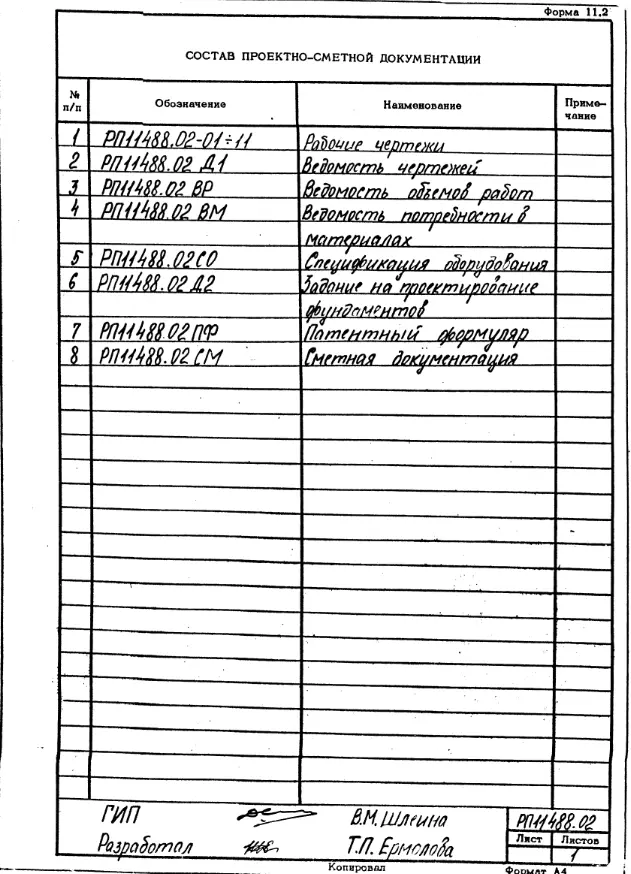 Форма 11.2
СОСТАВ ПРОЕКТНО-СМЕТНОЙ ДОКУМЕНТАЦИИ
№ п/п Обозначение Наименование Приме-
чание
1 РП11488.02-01÷11 Рабочие чертежи
2 РП11488.02 Д1 Ведомость чертежей
3 РП11488.02 ВР Ведомость объемов работ
4 РП11488.02 ВМ Ведомость потребности в
материалах
5 РП11488.02СО Спецификация оборудования
6 РП11488.02 Д2 Задание на проектирование
фундаментов
7 РП11488.02ПФ Патентный формуляр
8 РП11488.02 СМ Сметная документация
ГИП В.М. Шлеина РП11488.02
Разработал Т.П. Ермолова Лист Листов
1
Копировал Формат А4